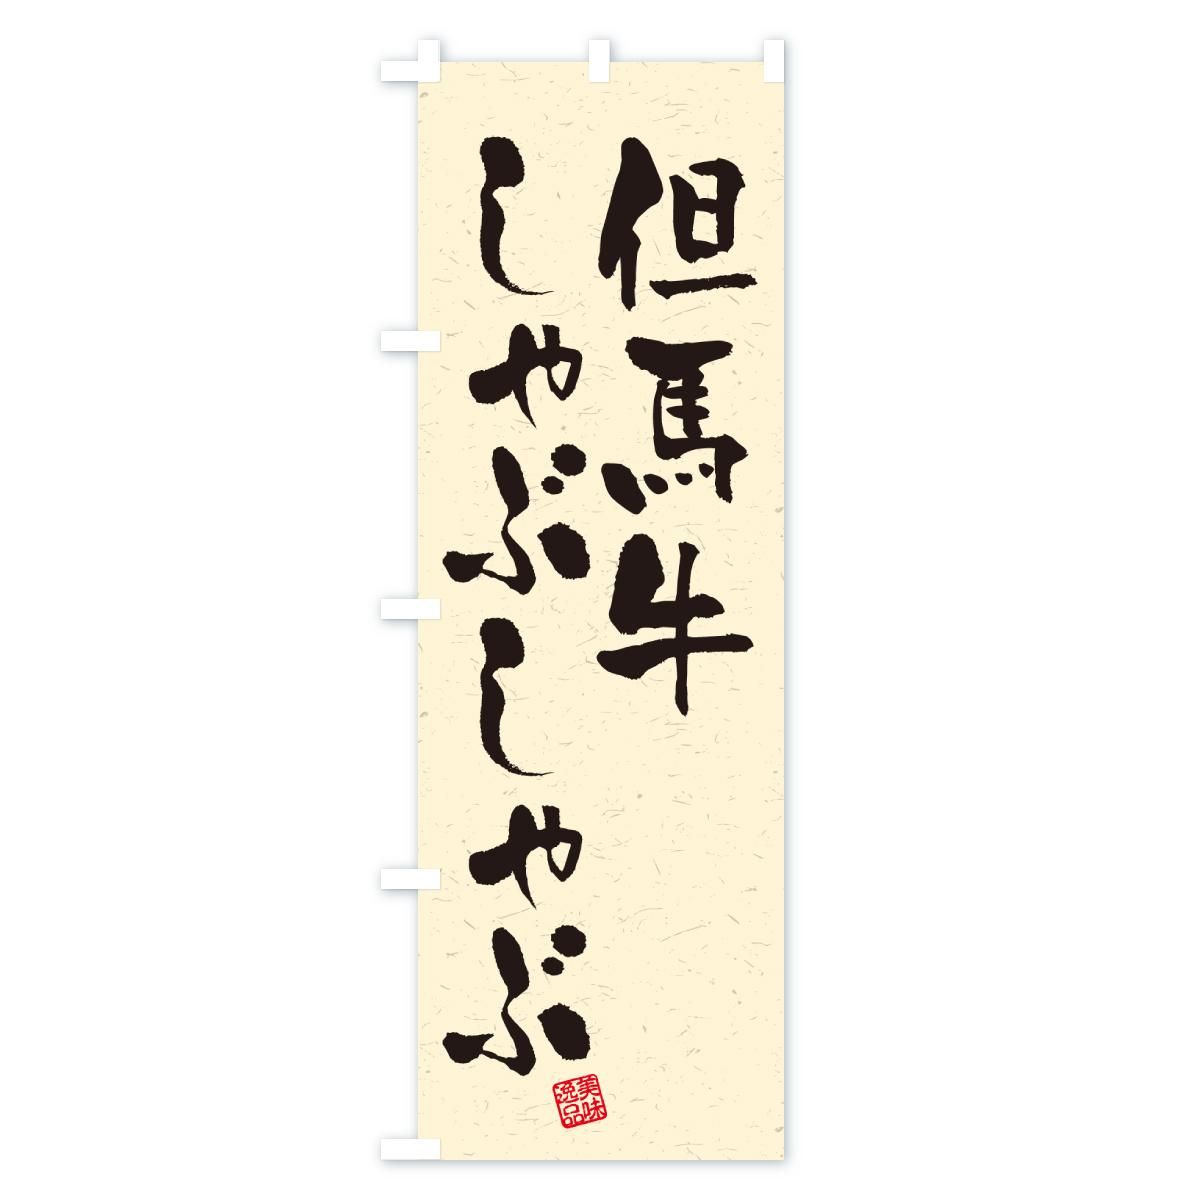 但馬牛
しゃぶしゃぶ
美味
逸品